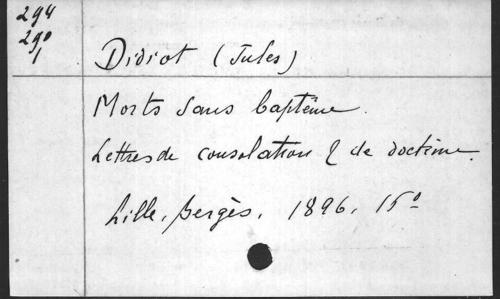 294
290
1
Didiot (Jules)
Morts sans baptême.
Lettres de consolation & de doctrine.
Lille, Bergès, 1896, 15º